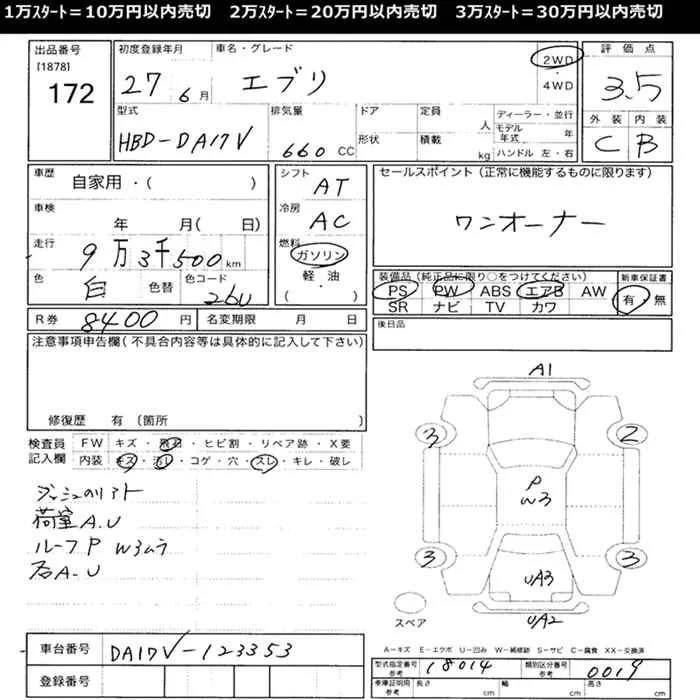 1万ｽﾀｰﾄ＝10万円以内売切　2万ｽﾀｰﾄ＝20万円以内売切　3万ｽﾀｰﾄ＝30万円以内売切
出品番号
[1878]
172
初度登録年月
27 6月
車名・グレード
エブリ
2WD
・
4WD
評価点
3.5
外装 内装
C B
型式
HBD-DA17V
排気量
660 CC
ドア
形状
定員
人
積載
kg
ディーラー・並行
モデル年式 年
ハンドル 左・右
車歴
自家用・( )
車検
年 月( 日)
走行
9万3千500km
色
白 色替
色コード
26U
シフト
AT
冷房
AC
燃料
ガソリン
軽・油
( )
セールスポイント (正常に機能するものに限ります)
ワンオーナー
装備品 (純正品に限り○をつけてください)
PS PW ABS エアB AW
SR ナビ TV カワ
新車保証書
有・無
後日品
R券 8400 円
名変期限 月 日
注意事項申告欄 (不具合内容等は具体的に記入して下さい)
修復歴 有 (箇所 )
検査員記入欄
FW キズ・飛石・ヒビ割・リペア跡・X要
内装 キズ・汚レ・コゲ・穴・スレ・キレ・破レ
荷室A.U
ルーフP W3ムラ
石A.U
A1
3
2
P
W3
3
3
UA3
UA2
スペア
A－キズ E－エクボ U－凹み W－補修跡 S－サビ C－腐食 XX－交換済
車台番号 DA17V-123353
登録番号
型式指定番号 参考 18014
類別区分番号 参考 0019
車庫証明用 参考 長さ cm 幅 cm 高さ cm